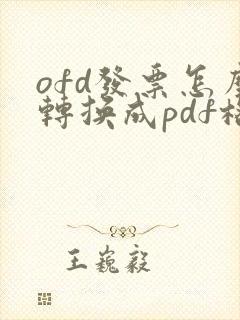 ofd發票怎麼
轉換成pdf格
王巍毅